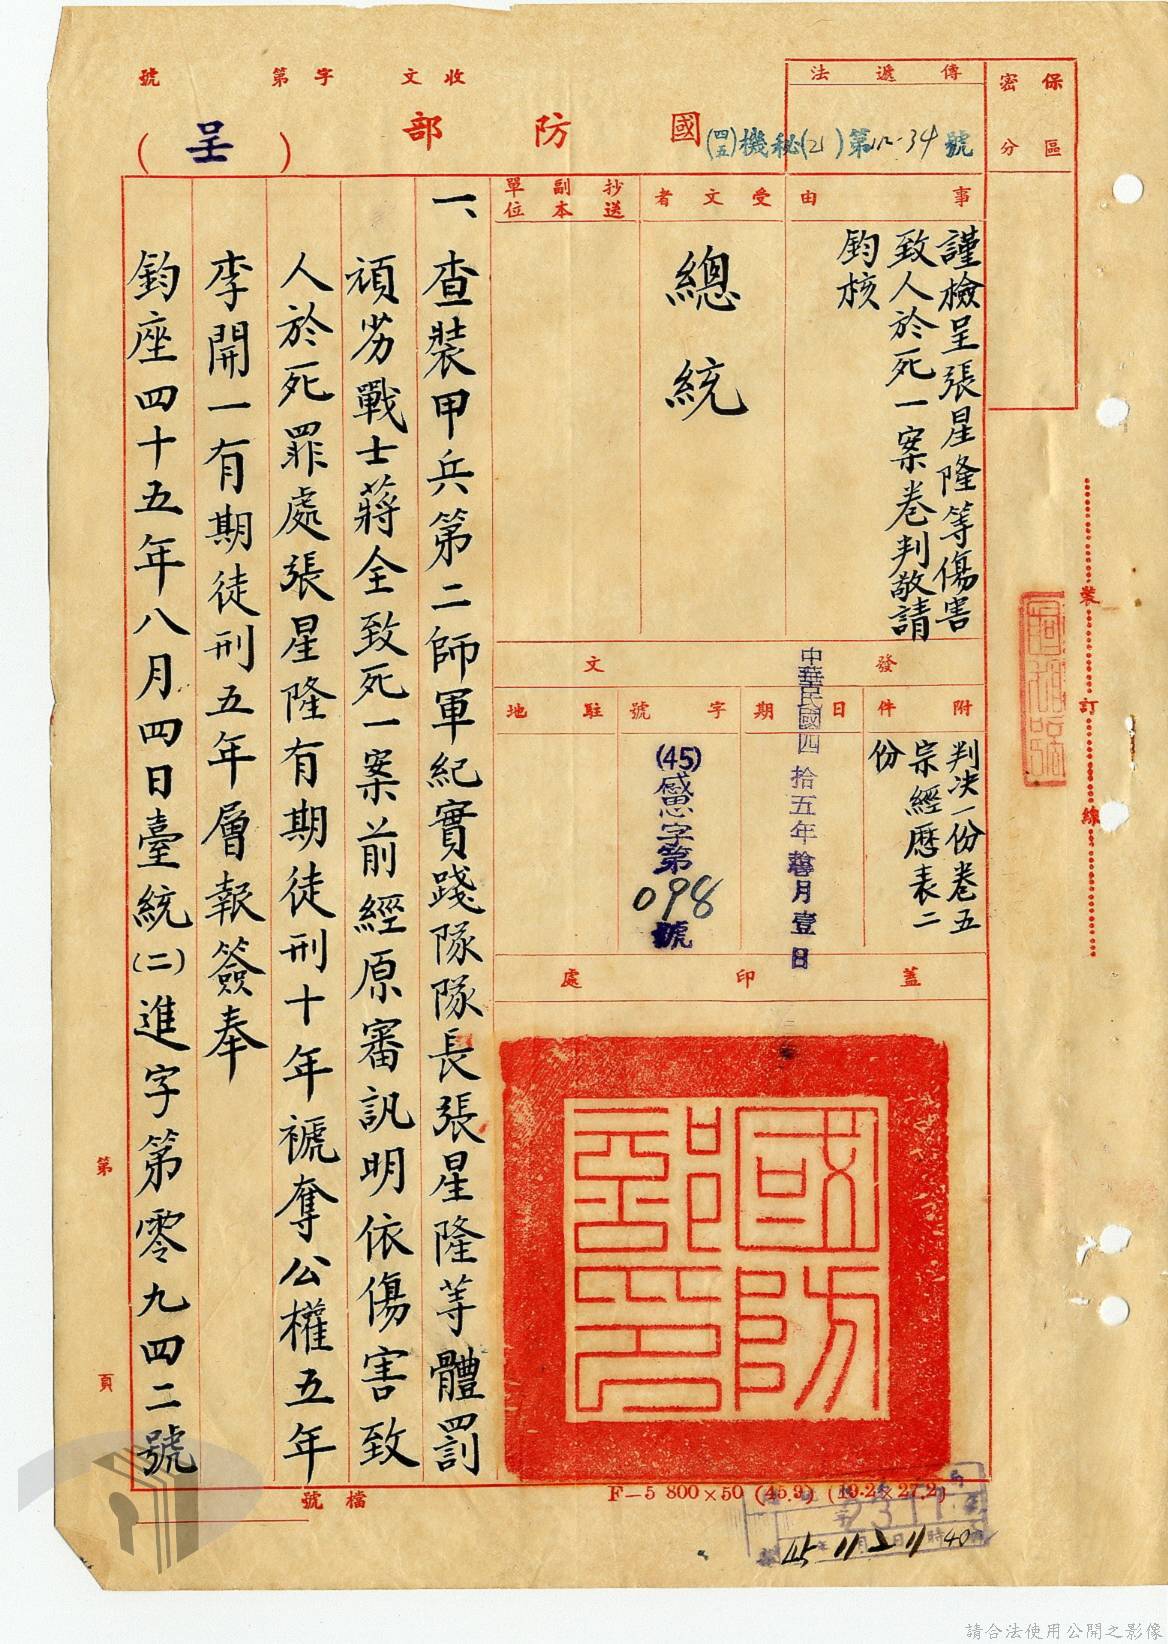 保密
區分
傳遞法
收文 字第 號
國防部
(呈)
(四五)機秘(2)第12-34號
事由
謹檢呈張星隆等傷害
致人於死一案卷判敬請
鈞核
受文者
總統
抄送
副本
單位
發文
附件
判決一份卷五
宗經歷表二
份
日期
中華民國四拾五年 月壹日
字號
(45)感思字第
098
號
駐地
蓋印處
國防部印
一、查裝甲兵第二師軍紀實踐隊隊長張星隆等體罰
頑劣戰士蔣全致死一案前經原審訊明依傷害致
人於死罪處張星隆有期徒刑十年褫奪公權五年
李開一有期徒刑五年層報簽奉
鈞座四十五年八月四日臺統(二)進字第零九四二號
裝訂線
第 頁
檔號
F—5 800×50 (45.9) (19.2×27.2)
45 11 2 11 40
請合法使用公開之影像